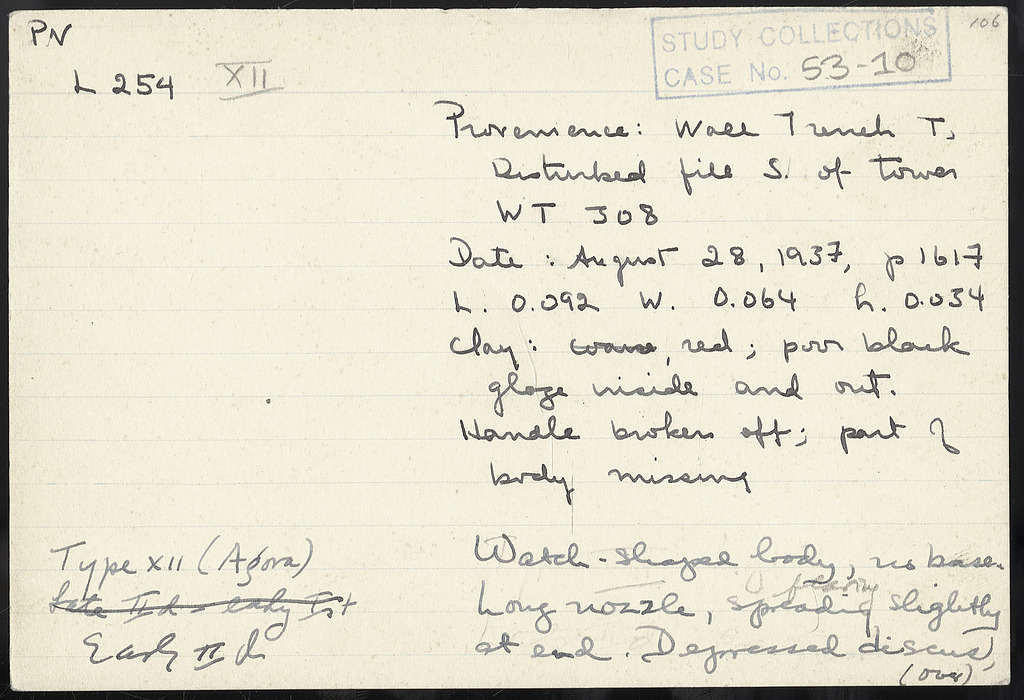 PN
106
STUDY COLLECTIONS
CASE No. 53-10
L 254 XII
Provenience: Wall Trench T,
Disturbed fill S. of Tower
WT 308
Date: August 28, 1937, p 1617
L. 0.092 W. 0.064 h. 0.034
Clay: coarse, red; poor black
glaze inside and out.
Handle broken off; part of
body missing
Type XII (Agora)
Late II d - early Ist
Early II d
Watch-shaped body, no base.
Long nozzle, spreading slightly
at end. Depressed discus,
(over)